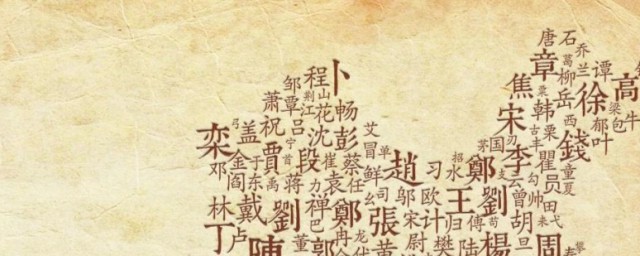 唐 石
章 葛 乔
柳 兰 谭
焦 栗 岳 徐 高
程 卜
邹 荆 山
萧 覃 江 花 畅
宋 韩 西 梁 包 牛
古 栗 郁 叶
栾 弓 盖 祝 吕 沈 彭 艾
宁 冒 单
国 李 丰 瞿 錢
金 贾 首 段 崔 蔡
邓 于 禹 袁 任 鲜 趙 习 招 鄭 支 员 童
阎 东 蒋 力 幺 邬 欧 水 云 勾 夏
林 戴 劉 禅 鄭 司 宋 计 王 劉 曾 帅 田 戈
丁 卢 董 巴 冉 龙 張 尉 樊 归 傅 苟 胡 未
陳 郭 黄 陆 楊 旦 周